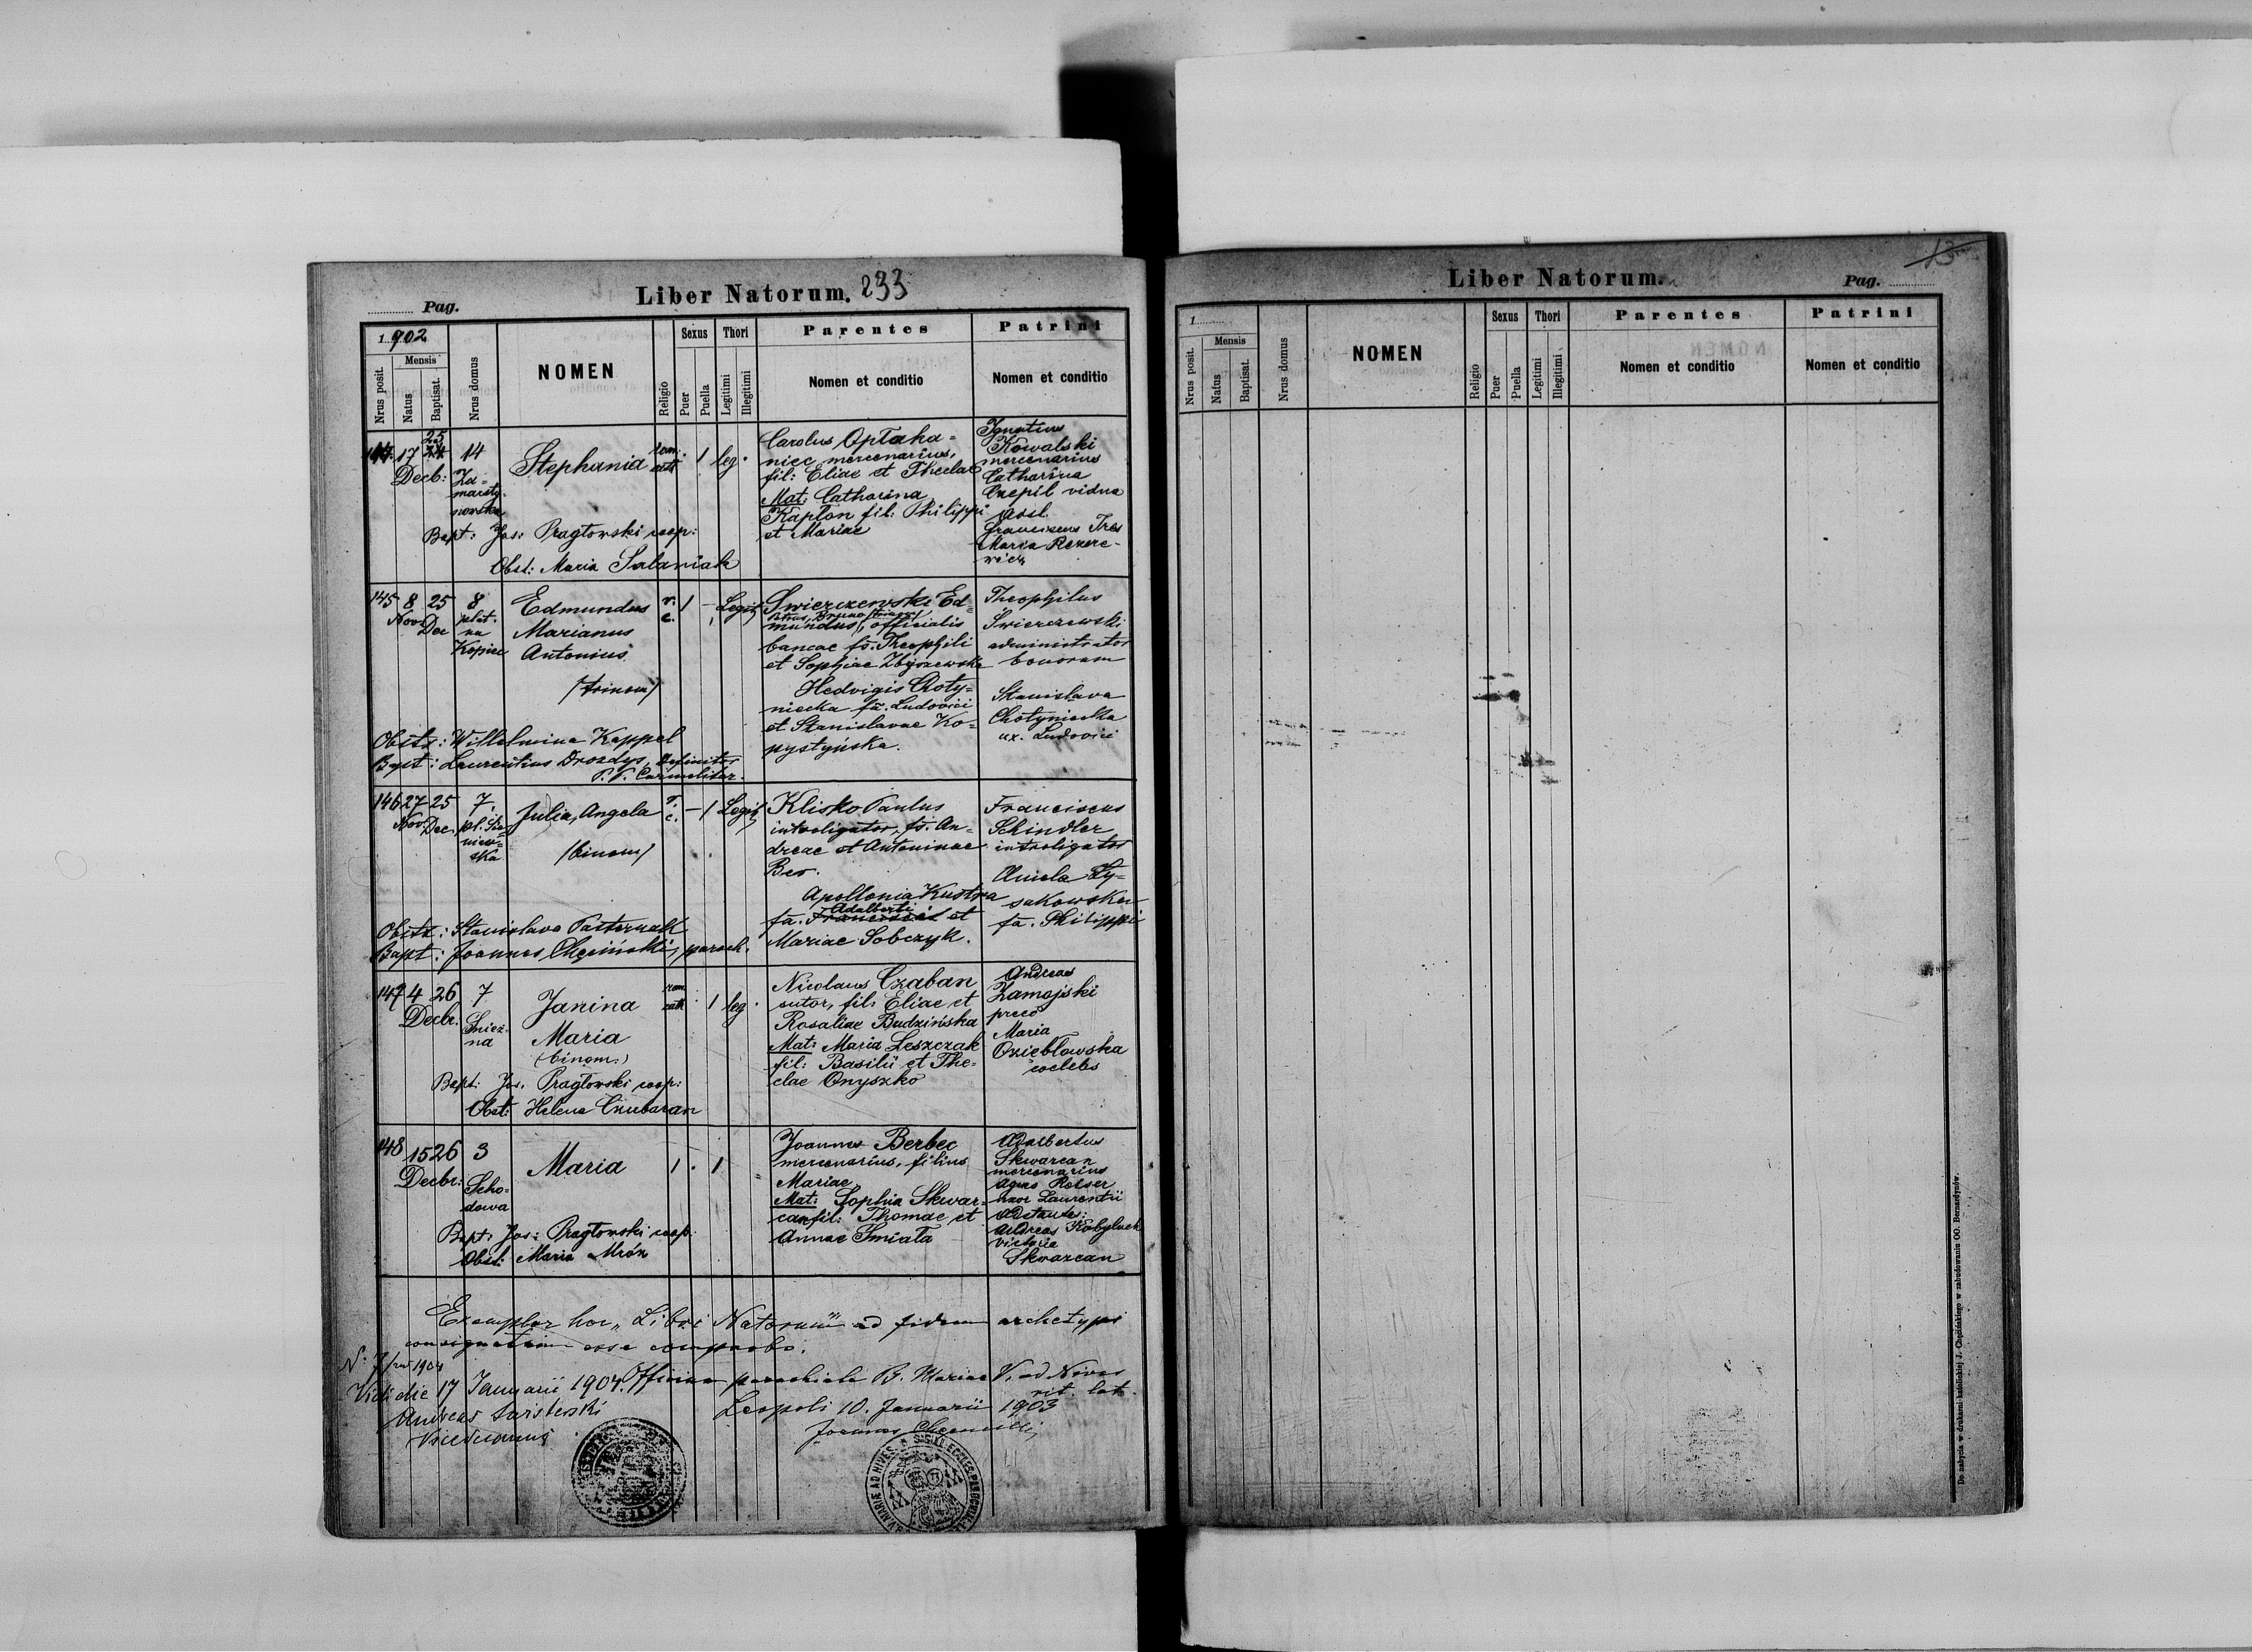 Liber Natorum. 233
Pag.
1902
Nrus posit.
Mensis
Natus
Baptisat.
Nrus domus
NOMEN
Religio
Sexus
Puer
Puella
Thori
Legitimi
Illegitimi
Parentes
Nomen et conditio
Patrini
Nomen et conditio
144. 17 25 14
Decb:
Za=
marsty-
nowska
Stephania
rom:
cath
1 leg.
Carolus Optaha=
niec mercenarius,
fil: Eliae et Theclae
Mat: Catharina
Kapton fil: Philippi
et Mariae
Ignatius
Kowalski
mercenarius
Catharina
Czepil vidua
Franciscus Tres
Maria Rezere-
wicz
Bapt: Jos: Pragłowski coop:
Obst: Maria Salaniak
145 8 25 8
Nov. Dec
na
Kopiec
Edmundus
Marianus
Antonius
/trinom/
r.
c.
1 - Legit.
Swierczewski Ed=
Petrus, Bruno /trinom/
mundus, officialis
bancae fs. Theophili
et Sophiae Zbyszewska
Hedvigis Choty=
niecka fa. Ludovici
et Stanislavae Ko=
pystyńska.
Theophilus
Świerczewski
administrator
bonorum
Stanislava
Chotyniecka
ux. Ludovici
Obstx: Wilhelmina Kappel
Bapt: Laurentius Drozdys, definitor
P. P. Carmelitar.
146 27 25 7.
Nov. Dec.
pl. Sie=
niew=
ska
Julia, Angela
/binom/
r.
c.
- 1 Legit.
Klisko Paulus
introligator, fs. An=
dreae et Antoninae
Ber.
Apollonia Kustra
Adalberti
fa. Francisci et
Mariae Sobczyk.
Franciscus
Schindler
introligator
Aniela Ły=
sakowska
fa. Philippi
Obstx: Stanislava Pasternak
Bapt: Joannes Chęciński, paroch.
147 4 26 7
Decbr.
Śnież-
na
Janina
Maria
(binom:)
rom
cath
1 leg.
Nicolaus Czaban
sutor, fil: Eliae et
Rosaliae Budzińska
Mat: Maria Leszczak
fil: Basilii et The=
clae Onyszko
Andreas
Zamojski
preco
Maria
Ozieblowska
coelebs
Bapt: Jos. Pragłowski coop:
Obst: Helena Czubaran
148 15 26 3
Decbr:
Scho-
dowa
Maria
1 . 1
Joannes Berbec
mercenarius, filius
Mariae
Mat: Sophia Skwar-
can fil: Thomae et
Annae Śmiała
Adalbertus
Skwarcan
mercenarius
Agnes Reiser
uxor Laurentii
Adstantes:
Andreas Kobyluch
Victoria
Skwarcan
Bapt: Jos: Pragłowski coop.
Obst: Maria Mróz
Exemplar hoc Libri Natorum ad fidem archetypi
consignatum esse comprobo.
Vidi die 17 Januarii 1904. Officium parochiale B. Mariae V. ad Nives
rit. lat.
Leopoli 10. Januarii 1903
Vicedecanus
Liber Natorum.
Pag.
1
Nrus posit.
Mensis
Natus
Baptisat.
Nrus domus
NOMEN
Religio
Sexus
Puer
Puella
Thori
Legitimi
Illegitimi
Parentes
Nomen et conditio
Patrini
Nomen et conditio
Do nabycia w drukarni katolickiej J. Chęcińskiego w zabudowaniu OO. Bernardynów.